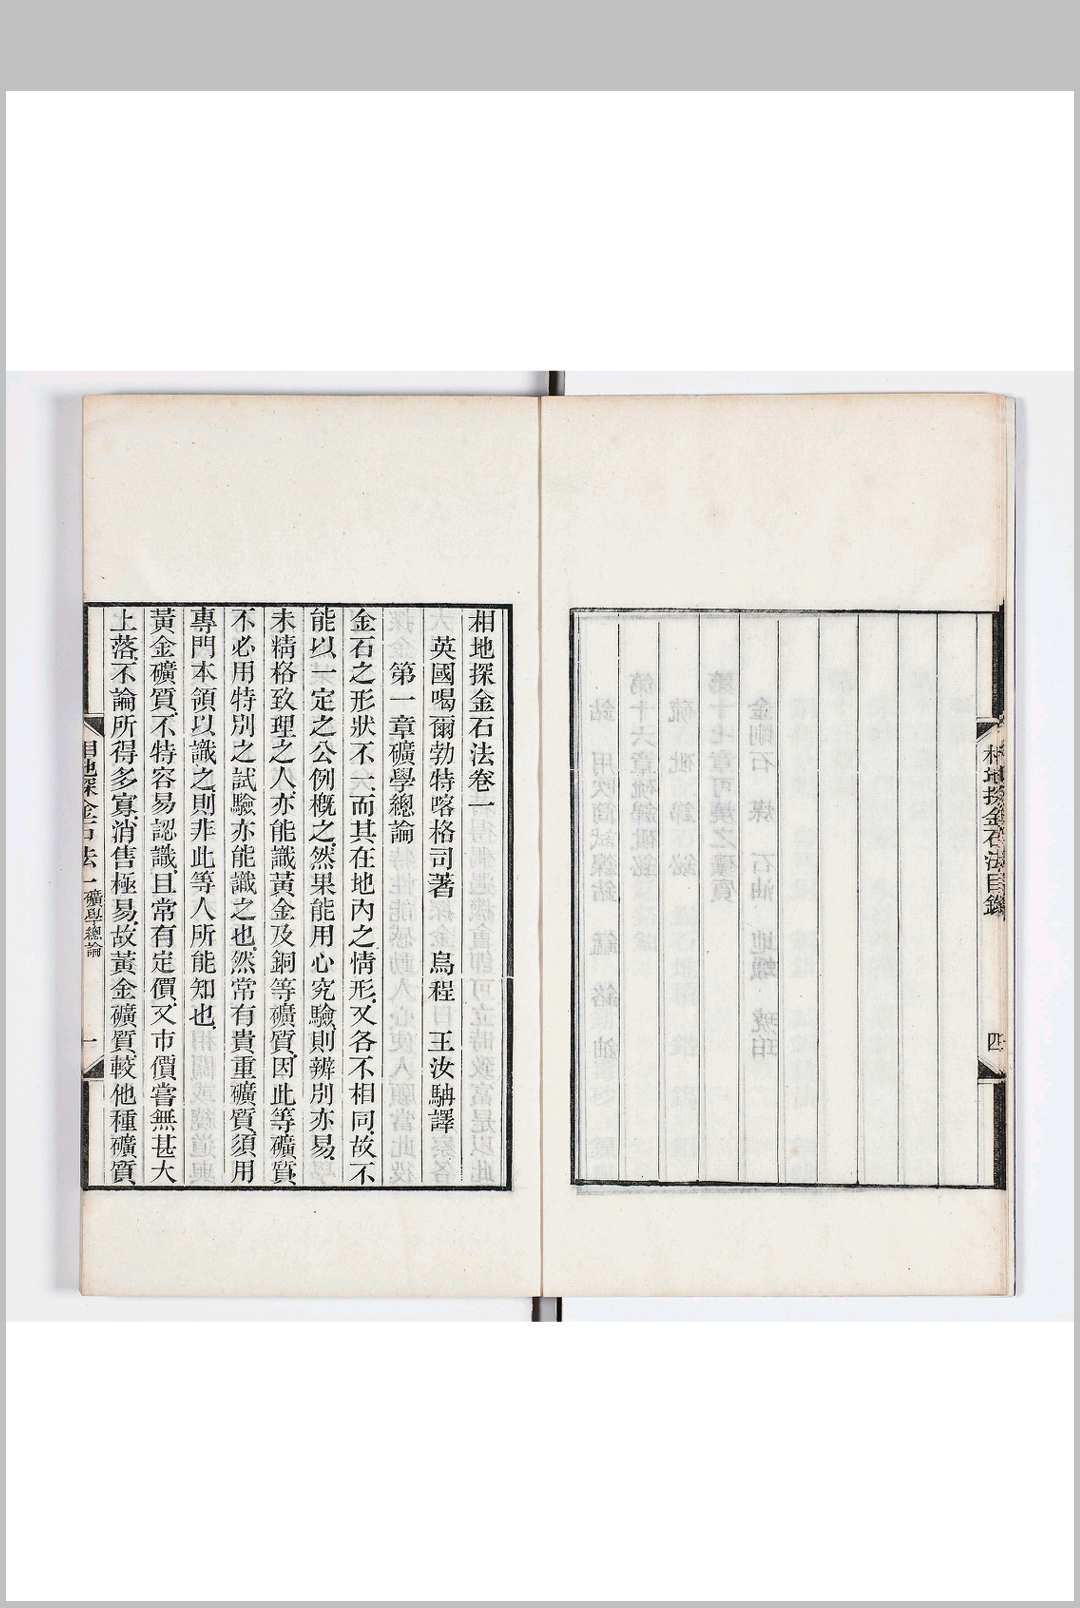 相地探金石法目錄
四
相地探金石法卷一
英國喝爾勃特喀格司著 烏程 王汝駉譯
第一章礦學總論
金石之形狀不一、而其在地內之情形、又各不相同、故不
能以一定之公例概之、然果能用心究驗、則辨別亦易、
未精格致理之人、亦能識黃金及銅等礦質、因此等礦質、
不必用特別之試驗、亦能識之也、然常有貴重礦質、須用
專門本領、以識之、則非此等人所能知也、
黃金礦質、不特容易認識、且常有定價、又市價嘗無甚大
上落、不論所得多寡、消售極易、故黃金礦質、較他種礦質、
相地探金石法一 礦學總論
一